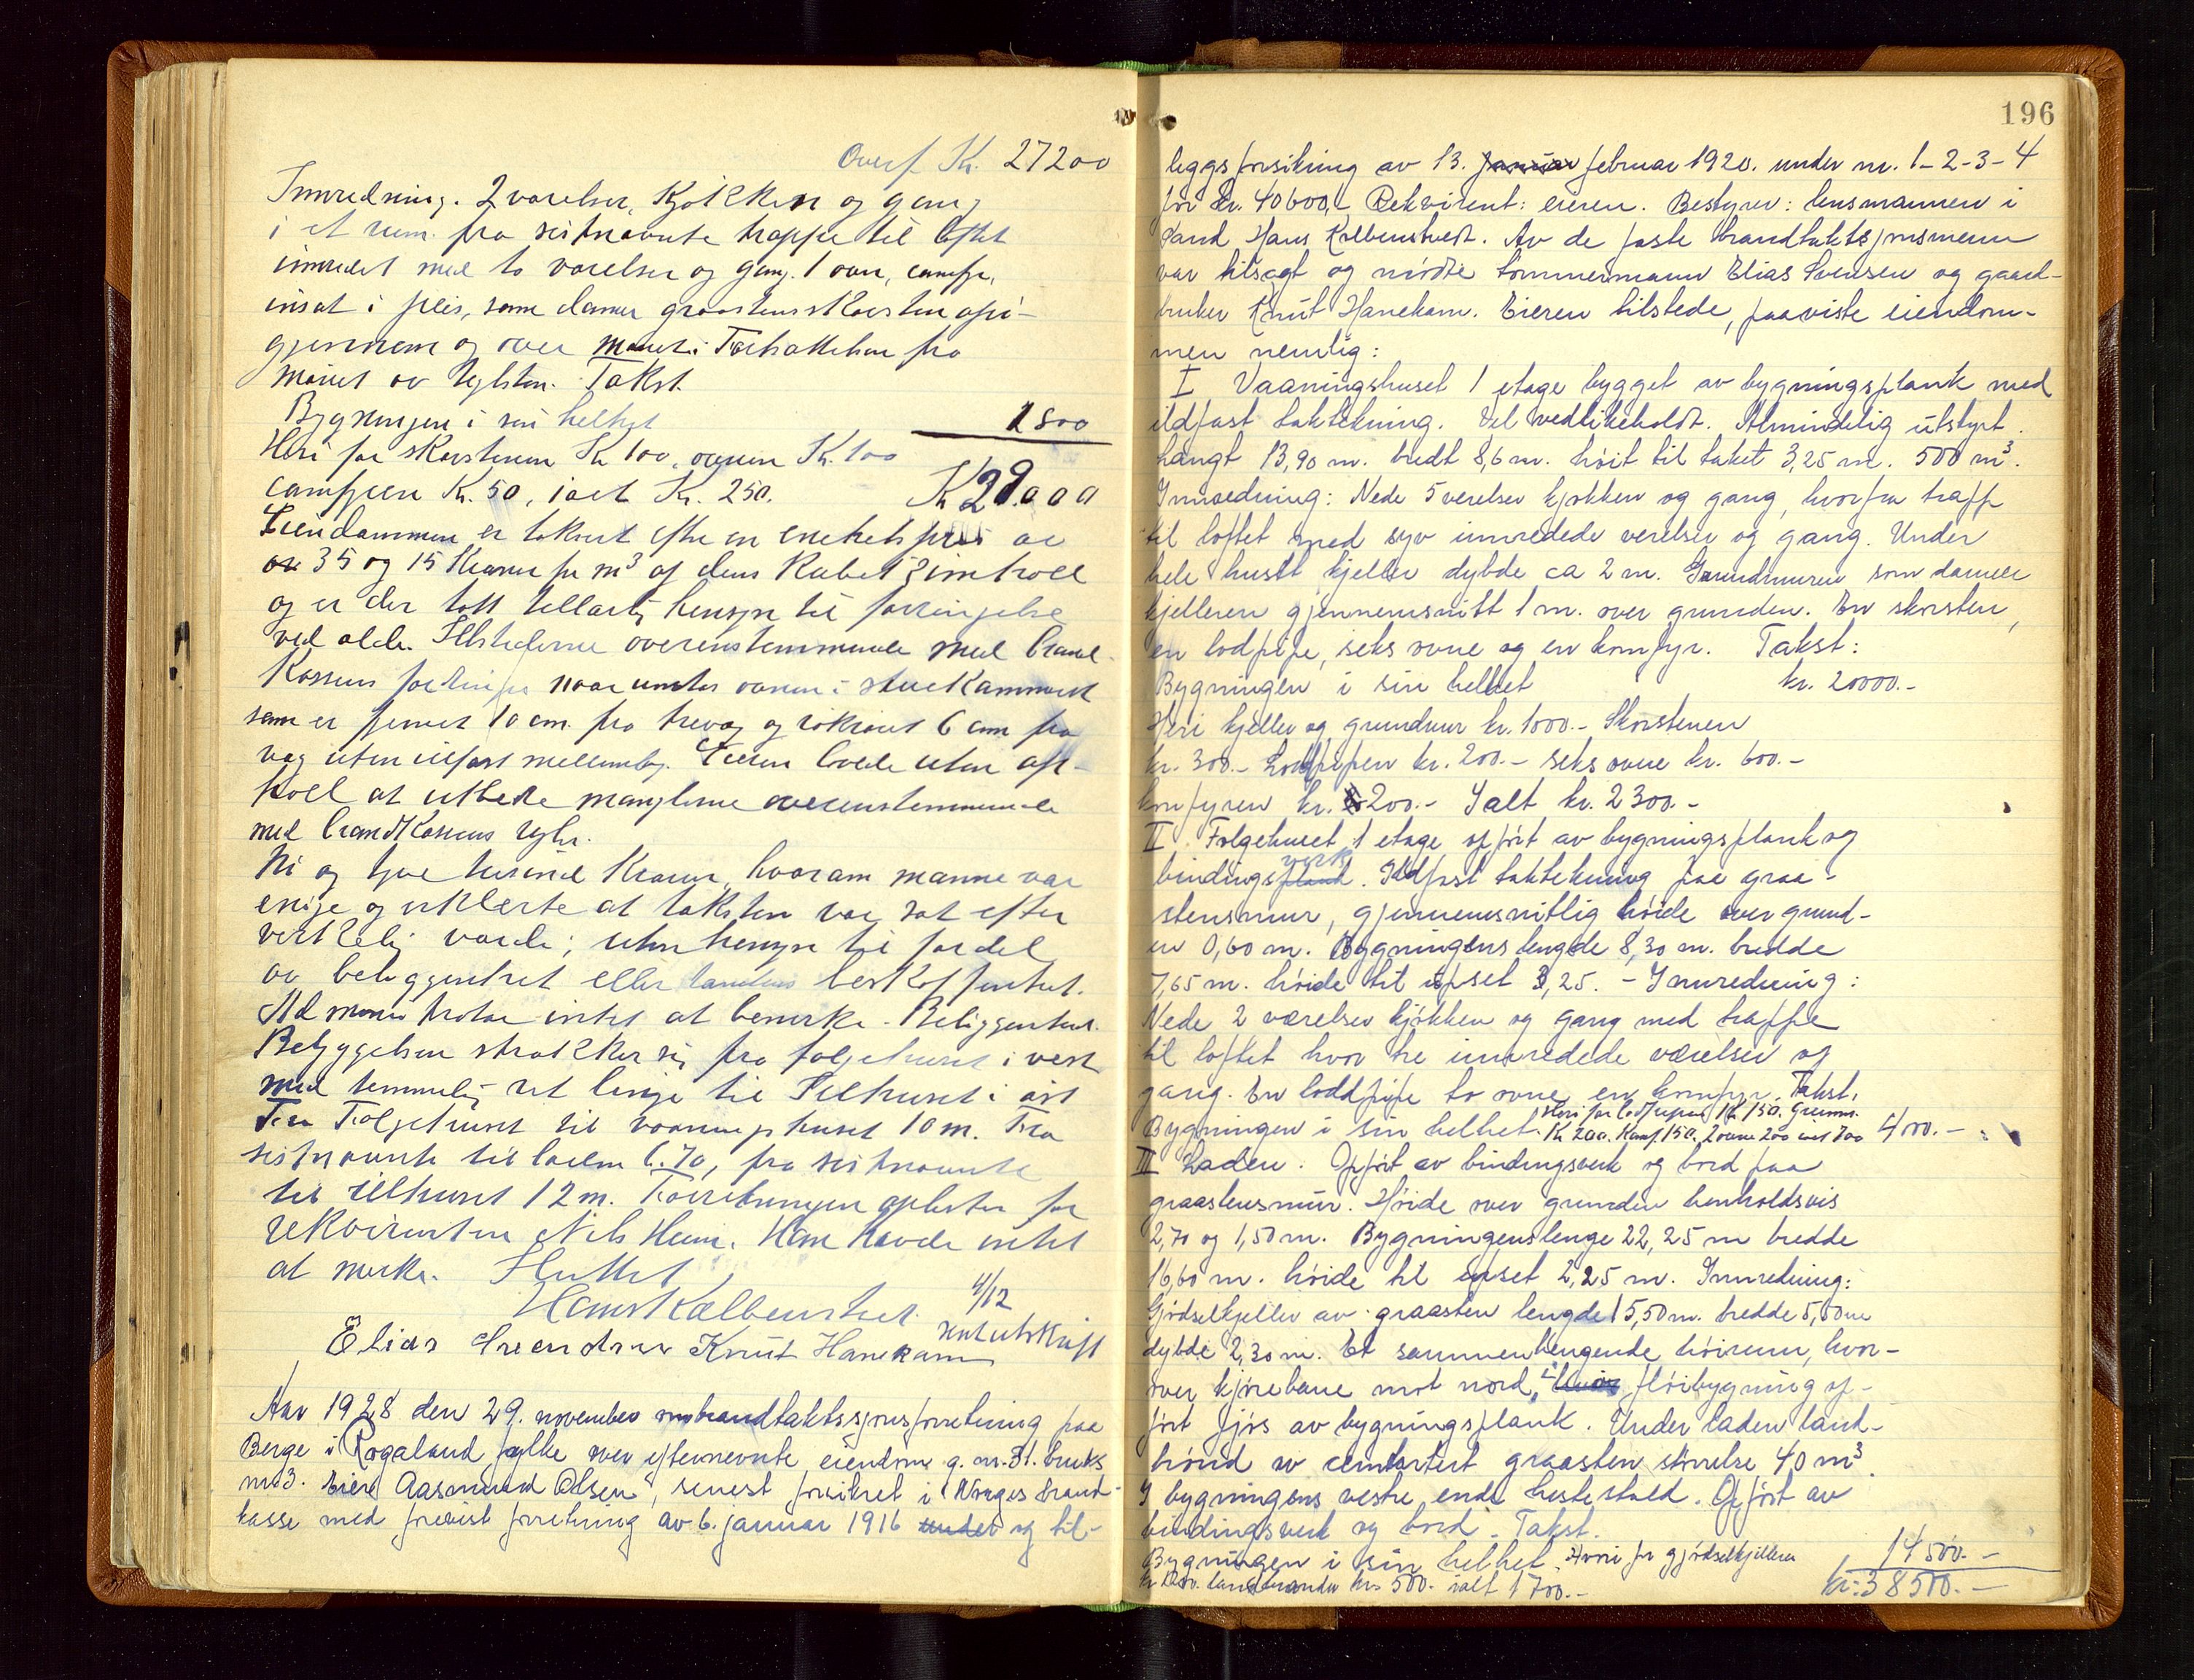 Overf Kr. 27200
Innredning. 2 værelser, Kjøkken og gang
i et rum fra sistnævnte trappe til loftet
innredet med to værelser og gang. 1 ovn, comfyr,
insat i peis, som danner graastensskorsten op i-
gjennem og over mønet. Forhøielsen fra
mønet av teglsten. Takst.
Bygningen i sin helhet 1800
Heri for skorstenen Kr 100, ovnen Kr. 100
comfyren Kr. 50, ialt Kr. 250. Kr 29.000
Eiendommen er takseret efter en enehetspris av
35 og 15 Kroner pr m³ af dens Kubek inhold
og er der tatt tillørlig hensyn til forringelse
ved ælde. Ildstederne overensstemmende med brand-
Kassens forskrifter naar undtas ovnen i stuekammeret
som er fjernet 10 cm fra trevæg og rökröret 6 cm fra
væg uten ildfast mellemlæg. Eieren lovede uten op-
hold at utbedre manglerne overensstemmende
med brandkassens regler.
Ni og tyve tusinde Kroner, hvorom mænne var
enige og erklærte at taksten var sat efter
virkelig værdi; uten hensyn til fordel
av beliggenhet eller tomtens beskaffenhet.
Administrator intet at bemerke. Beliggenhet.
Bebyggelsen strækker sig fra følgehuset i vest
med temmelig ret linje til Ildhuset i øst
Fra Følgehuset til vaaningshuset 10 m. Fra
sistnævnte til laden 6.70, fra sistnævnte
til Ildhuset 12 m. Forretningen oplæstes for
rekvirenten Nils Heim. Han havde intet
at merke. Sluttet
Hans Kolbenstvet 4/12
Elias Svendsen Knut Hanekam sent utskrift
Aar 1928 den 29. november brandtakstsjonsforretning paa
Berge i Rogaland fylke over efternevnte eiendom g. nr. 31. bruks
nr 3. Eier Aasmund Olsen, senest forsikret i Norges brand-
kasse med forrige forretning av 6. januar 1916 under og til-
196
leggsforsikring av 13. januar februar 1920. under nr. 1-2-3-4
for kr. 40600,- Rekvirent: eieren. Bestyrer: lensmannen i
Sand Hans Kolbenstvedt. Av de faste brandtakstsjonsmenn
var tilsagt og mödte tommermann Elias Svensen og gaard-
bruker Knut Hanekam. Eieren tilstede, paaviste eiendom-
men nemlig:
I Vaaningshuset 1 etage bygget av bygningsplank med
ildfast taktekning. Vel vedlikeholdt. Almindelig utstyrt.
Langt 13,90 m. bredt 8,6 m. höit til taket 3,25 m. 500 m³.
Innredning: Nede 5 verelser kjøkken og gang, hvorfra trapp
til loftet med syv innredede verelser og gang. Under
hele huset kjeller dybde ca 2 m. Grundmuren som danner
kjelleren gjennemsnitt 1 m. over grunden. En skorsten,
en lodpipe, seks ovne og en komfyr. Takst:
Bygningen i sin helhet kr. 20000.-
Heri kjeller og grundmur kr. 1000.- Skorstenen
kr. 300.- Lodpipen kr. 200.- seks ovne kr. 600.-
komfyren kr. 200.- Ialt kr. 2300.-
II. Følgehuset 1 etage opfört av bygningsplank og
bindingsplank verk. Ildfast taktekning paa graa-
stensmur, gjennemsnitlig höide over grund-
en 0,60 m. Bygningens lengde 8,30 m. bredde
7,65 m. höide til öpset 3,25. - Innredning:
Nede 2 værelser kjökken og gang med trappe
til loftet hvor tre innredede værelser og
gang. En loddpipe to ovne en komfyr. Takst.
Bygningen i sin helhet. Heri for lodpipen Kr 150. Grunnm. Kr 200. Komf. 150. 2 ovne 200 ialt 700 4000.-
III Laden. Opfört av bindingsverk og bord paa
graastensmur. Höide over grunden henholdsvis
2,70 og 1,50 m. Bygningens lenge 22,25 m bredde
16,60 m. höide til øpset 2,25 m. Innredning:
Gjödselkjeller av graasten lengde 15,50 m. bredde 5,50 m
dybde 2,30 m. Et sammenhengende höirum, hvor-
over kjörebane mot nord, i flöibygning op-
fört fjös av bygningsplank. Under laden land-
brönd av cementert graasten störrelse 40 m³.
I bygningens vestre ende hestestald. Opfört av
bindingsverk og bord. Takst.
Bygningen i sin helhet. Hvori for gjödselkjelleren 14500.-
kr 1200. landbrönder kr. 500. ialt 1700.- kr: 38500.-